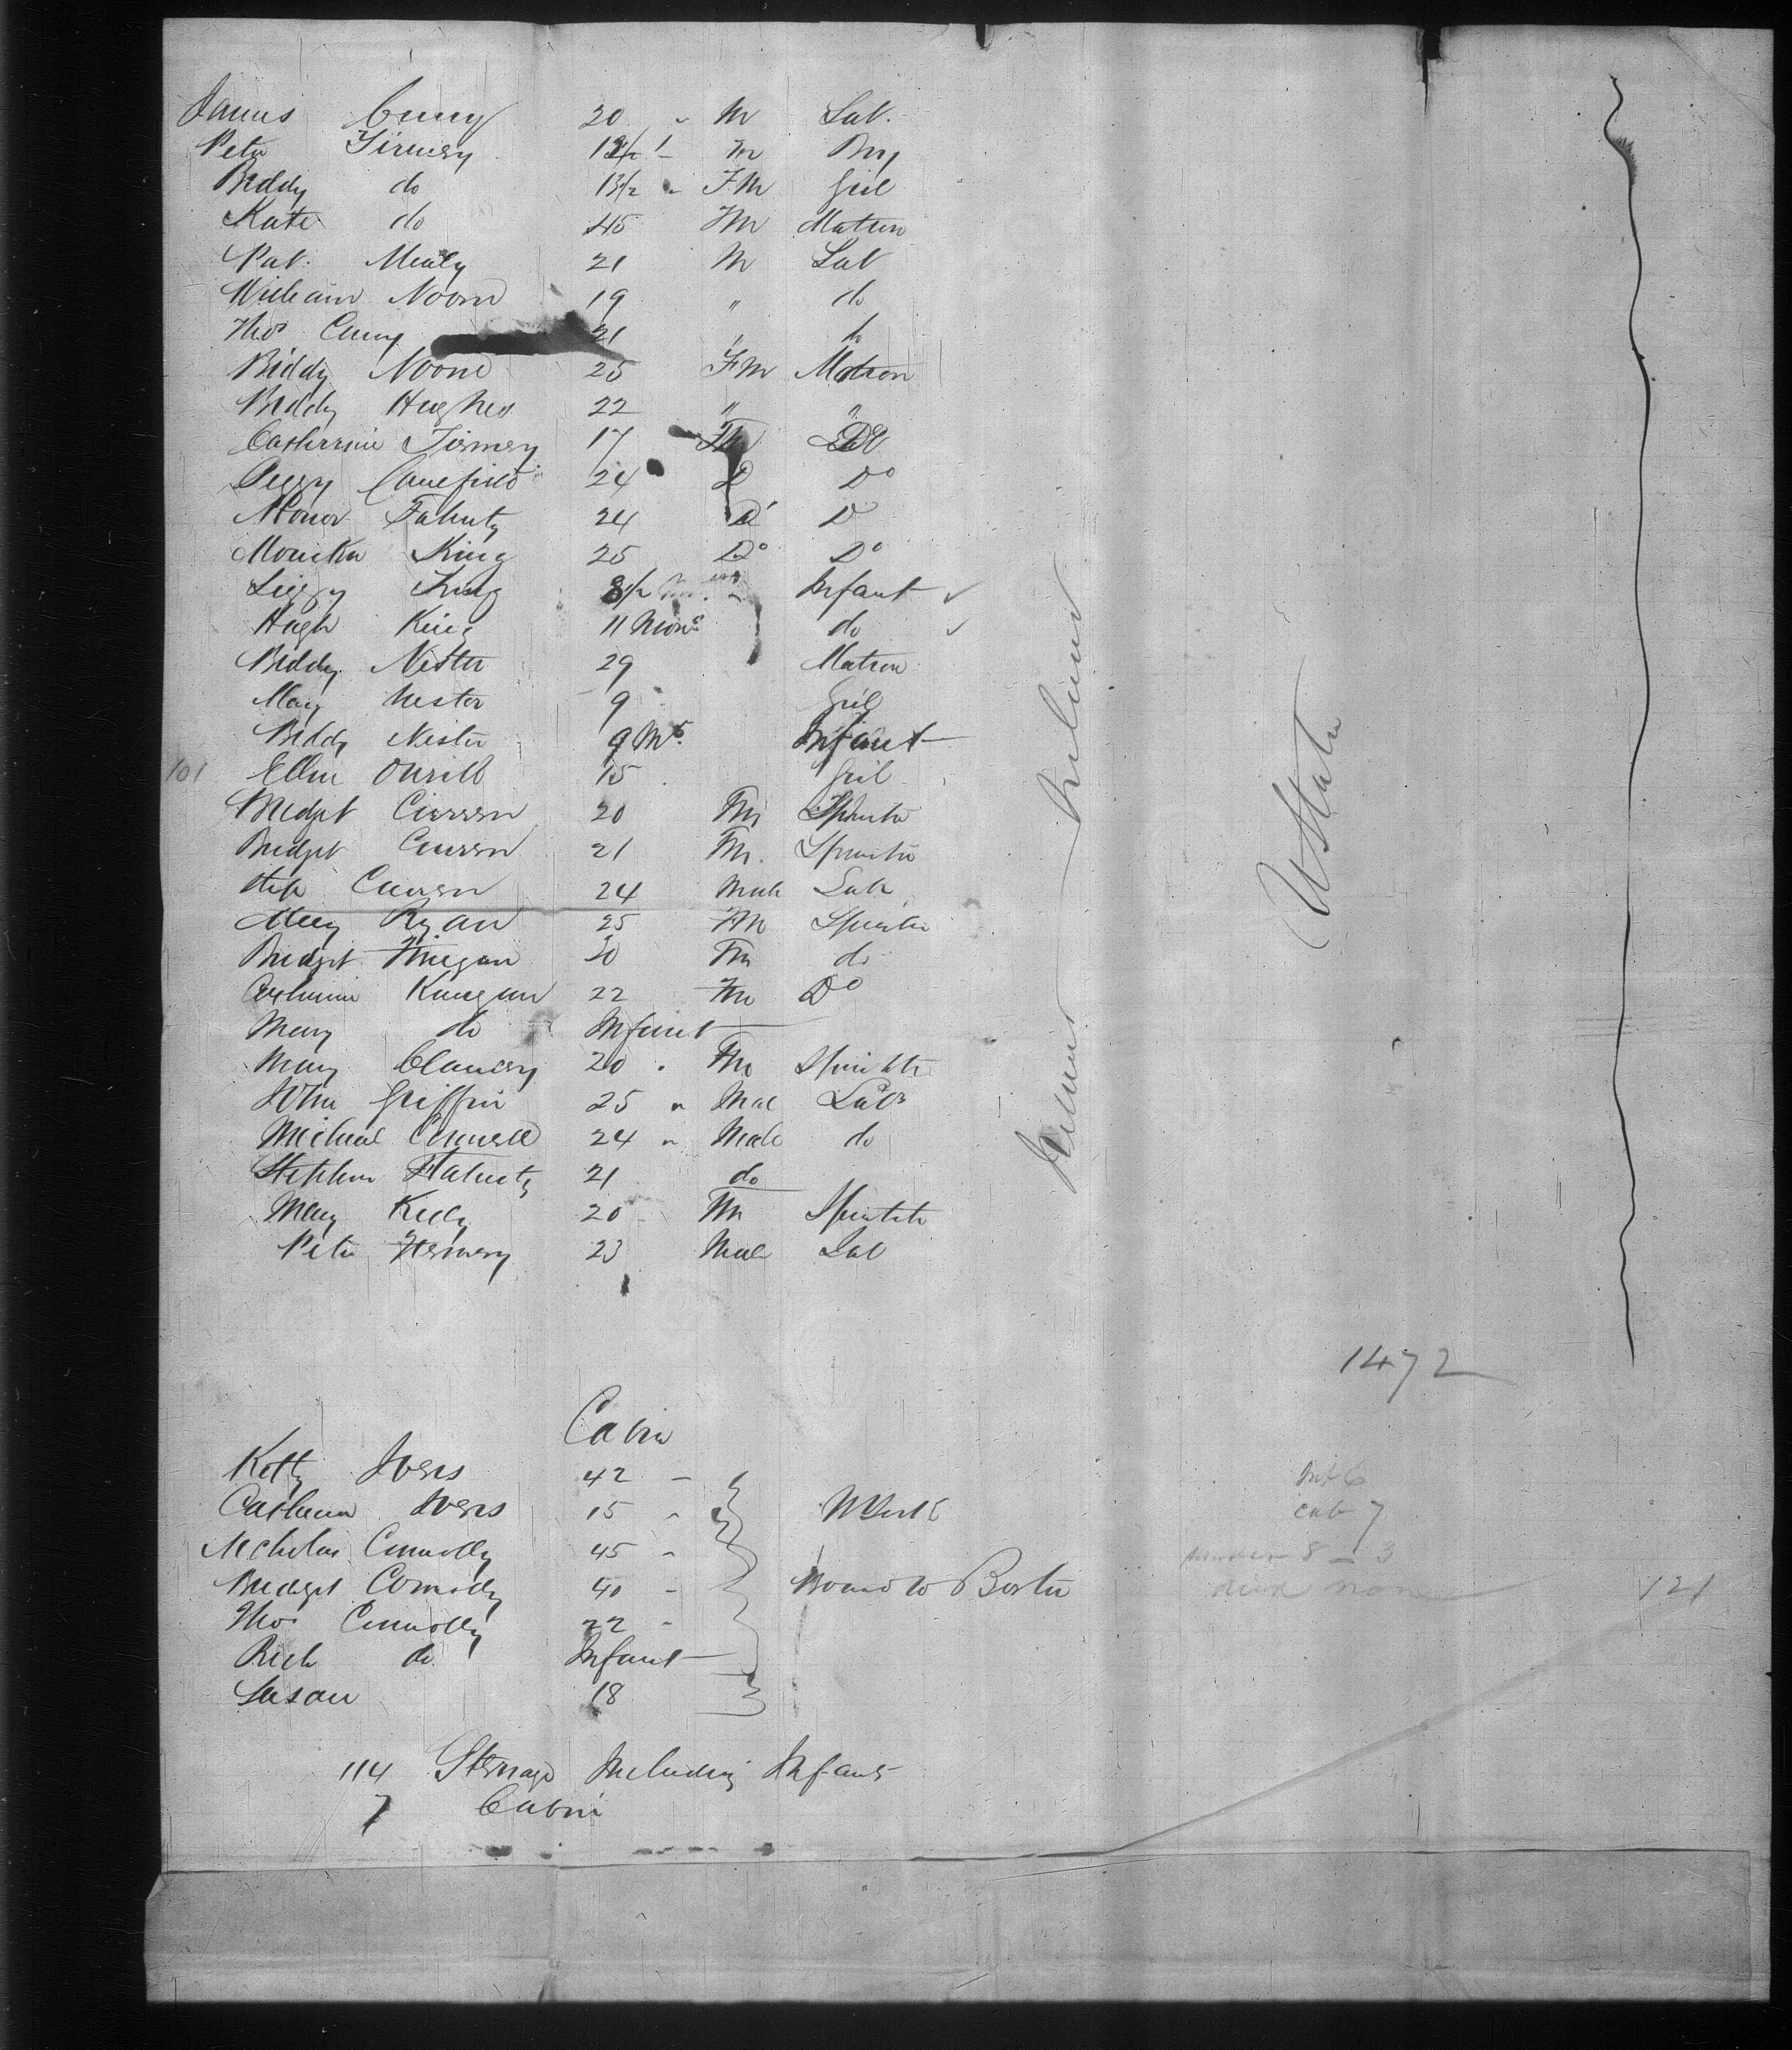 James Curry 20 " M Lab.
Peter Tierney 1 M Boy
Biddy do 1 3/2 " FM Girl
Kate do 45 FM Matron
Pat. Mealy 21 M Lab
William Noon 19 " do
Thos Curry 21 " do
Biddy Noone 25 FM Matron
Biddy Hughes 22 " "
Catherine Tierney 17 FM Do
Peggy 24 D Do
Honor Fahuty 24 Do Do
Monika King 25 Do Do
King Infant ✓
Hugh King 11 Mons do ✓
Biddy Nester 29 Matron
May Nester 9 Girl
Biddy Nester 9 Mts. Infant
101 Ellen 15 Girl
Bridget Curren 20 Fm Spinster
Bridget Curren 21 Fm. Spinster
Curren 24 Male Lab
Mary Ryan 25 Fm Spinster
Bridget 20 Fm do
Catherine 22 Fm Do
Mary do Infant
Mary Clancey 20 " Fm Spinster
John Griffin 25 " Male Labr
Michael 24 " Male do
Stephen Flahuty 21 do
Mary Kelly 20 Fm Spinster
Peter 23 Male Lab
Ireland
U States
1472
Cabin
Kitty Ivers 42 "
Catherine Ivers 15 " N York
Nicholas Connolly 45 "
Bridget Connolly 40 " Bound to Boston
Thos Connolly 22 "
Rich do Infant
Susan 18
Inf 6
cab 7
under 8 – 3
died none
121
114 Steerage Including Infants
7 Cabin